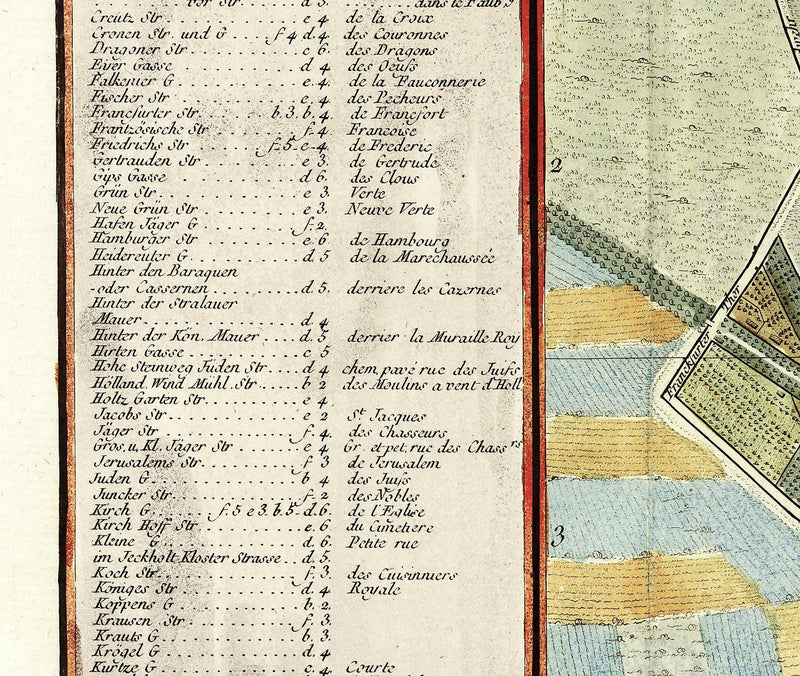 vor Str. d 3. dans le Faub g
Creutz Str e 4 de la Croix
Cronen Str. und G f 4 d. 4. des Couronnes
Dragoner Str. c 6. des Dragons
Eyer Gasse d 4 des Oeufs
Falkenier G e. 4. de la Fauconnerie
Fischer Str e. 4. des Pecheurs
Francfurter Str. b. 3. b. 4. de Francfort
Frantzösische Str f. 4. Francoise
Friedrichs Str f. 5. e-4. de Frederic
Gertrauden Str. e 3. de Gertrude
Gips Gasse d 6. des Clous
Grün Str. e 3. Verte
Neue Grün Str e 3. Neuve Verte
Hafen Jäger G f. 2.
Hamburger Str e 6 de Hambourg
Heidereuter G d. 5 de la Marechaussée
Hinter den Baraquen
-oder Cassernen d. 5. derriere les Cazernes
Hinter der Stralauer
Mauer d 4
Hinter der Kön. Mauer d. 5 derrier la Muraille Roy
Hirten Gasse c 5
Hohe Steinweg Juden Str. d 4 chem. pavé rue des Juifs
Holland. Wind Mühl. Str. b 2 des Moulins a vent d'Holl
Holtz Garten Str. e 4.
Jacobs Str. e 2 St. Jacques
Jäger Str f. 4. des Chasseurs
Gros. u. Kl. Jäger Str e 4 Gr. et pet. rue des Chassrs
Jerusalems Str. f 3 de Jerusalem
Juden G b 4 des Juifs
Juncker Str. f. 2 des Nobles
Kirch G f. 5 e 3. b. 5-d. 6. de l'Eglise
Kirch Hoff Str. e. 6 du Cimetiere
Kleine G d. 6. Petite rue
im Jeckholt Kloster Strasse d. 5.
Koch Str. f. 3. des Cuisinniers
Königes Str d. 4 Royale
Koppens G b. 2.
Krausen Str f. 3.
Krauts G b. 3.
Krögel G d. 4
Kurtze G c. 4. Courte
2
3
Franckfurter Thor